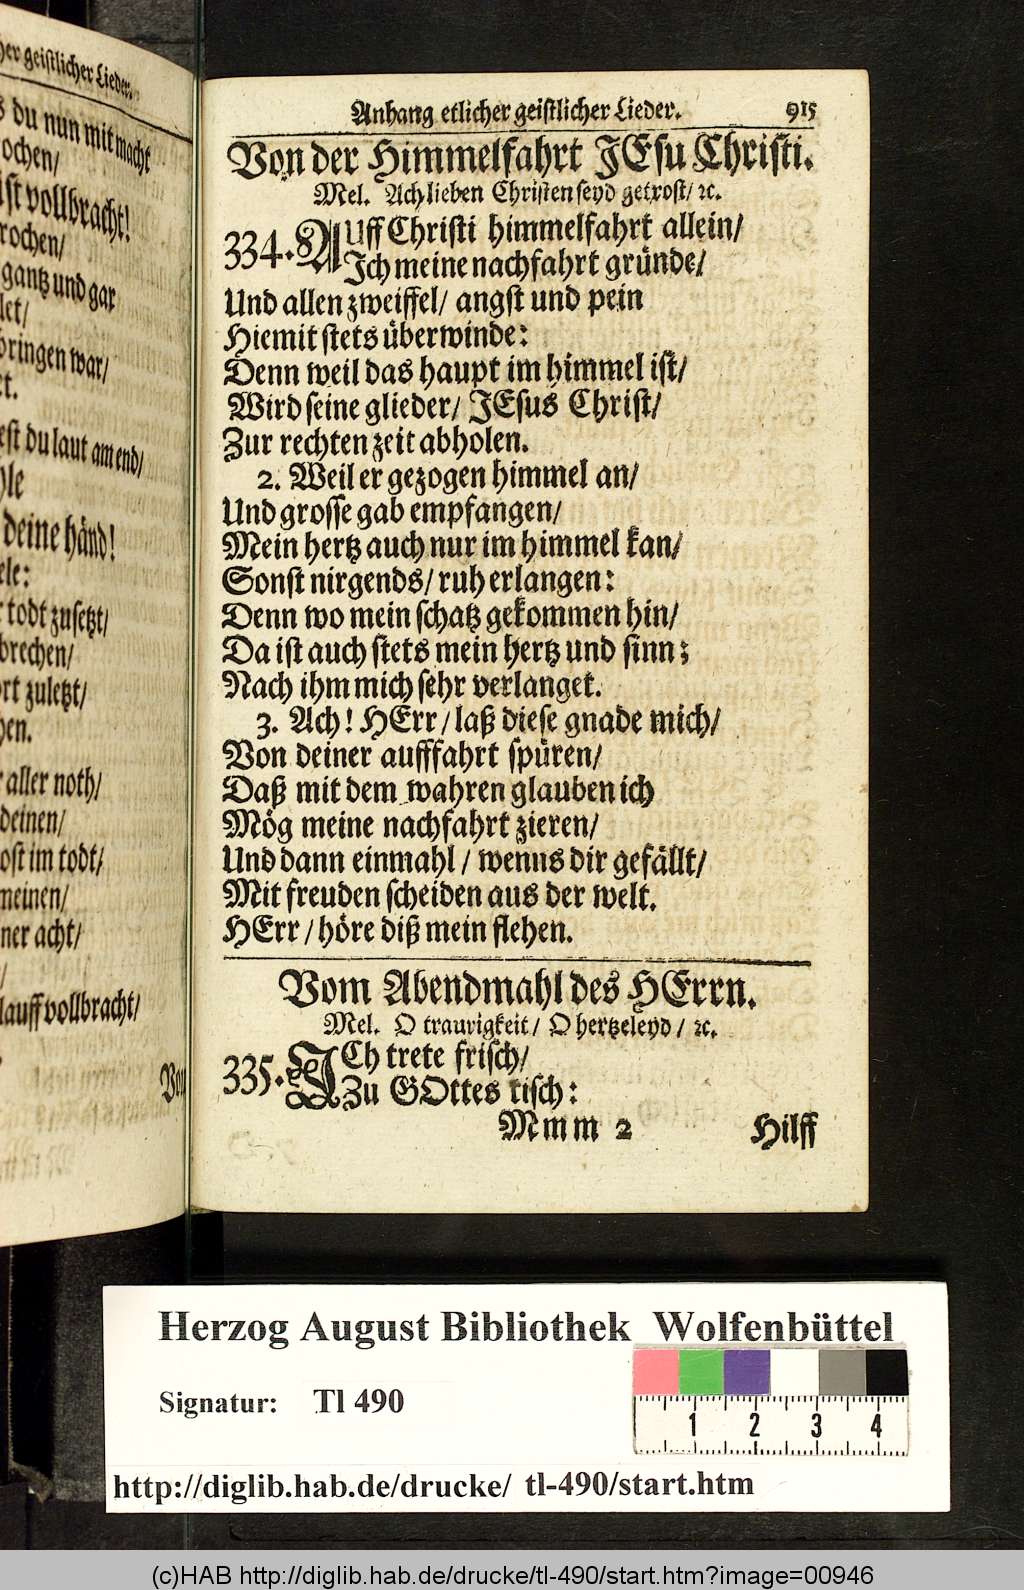 her geistlicher Lieder.
du nun mit macht
ochen/
ist vollbracht!
rochen/
gantz und gar
let/
bringen war/
et.
est du laut am end/
hle
deine händ!
ele:
todt zusetzt/
brechen/
rt zuletzt/
hen.
aller noth/
deinen/
ost im todt/
meinen/
ner acht/
/
lauff vollbracht/
Von
Anhang etlicher geistlicher Lieder. 915
Von der Himmelfahrt JEsu Christi.
Mel. Ach lieben Christen seyd getrost/ ꝛc.
334. AUff Christi himmelfahrt allein/
Ich meine nachfahrt gründe/
Und allen zweiffel/ angst und pein
Hiemit stets überwinde:
Denn weil das haupt im himmel ist/
Wird seine glieder/ JEsus Christ/
Zur rechten zeit abholen.
2. Weil er gezogen himmel an/
Und grosse gab empfangen/
Mein hertz auch nur im himmel kan/
Sonst nirgends/ ruh erlangen:
Denn wo mein schatz gekommen hin/
Da ist auch stets mein hertz und sinn;
Nach ihm mich sehr verlanget.
3. Ach! HErr/ laß diese gnade mich/
Von deiner aufffahrt spüren/
Daß mit dem wahren glauben ich
Mög meine nachfahrt zieren/
Und dann einmahl/ wenns dir gefällt/
Mit freuden scheiden aus der welt.
HErr/ höre diß mein flehen.
Vom Abendmahl des HErrn.
Mel. O traurigkeit/ O hertzeleyd/ ꝛc.
335. ICh trete frisch/
Zu GOttes tisch:
Mmm 2 Hilff
Herzog August Bibliothek Wolfenbüttel
Signatur: Tl 490
1 2 3 4
http://diglib.hab.de/drucke/ tl-490/start.htm
(c)HAB http://diglib.hab.de/drucke/tl-490/start.htm?image=00946